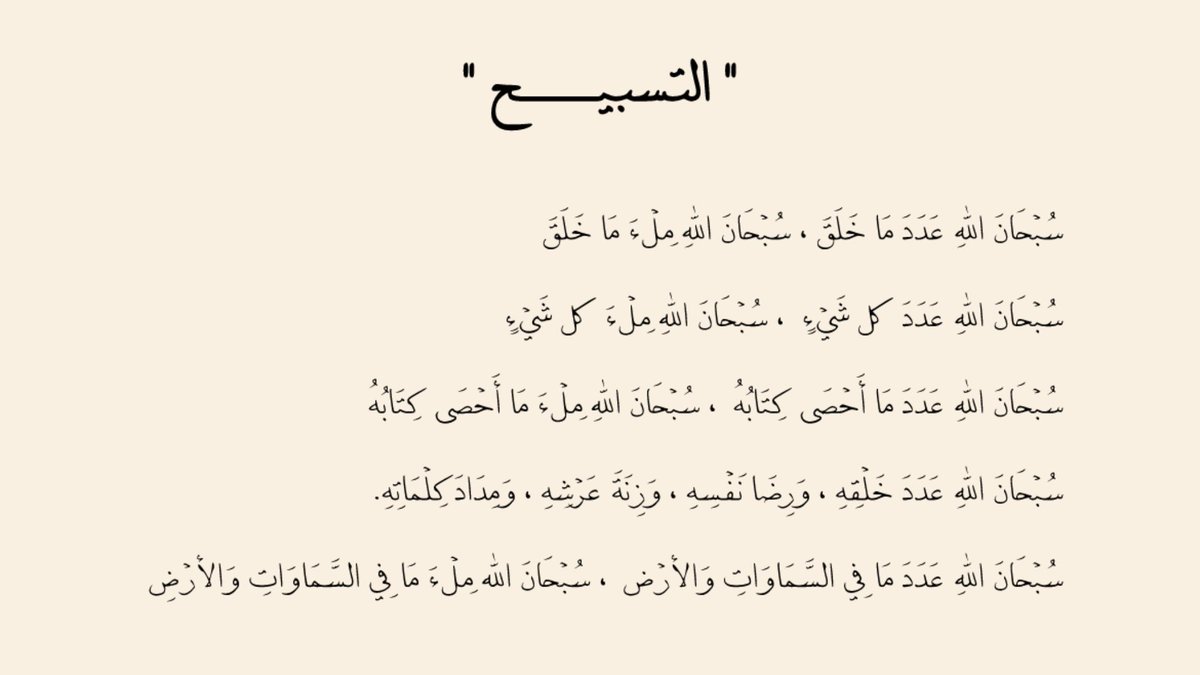 " التسبيـــــح "
سُبْحَانَ اللهِ عَدَدَ مَا خَلَقَ ، سُبْحَانَ اللهِ مِلْءَ مَا خَلَقَ
سُبْحَانَ اللهِ عَدَدَ كل شَيْءٍ ، سُبْحَانَ اللهِ مِلْءَ كل شَيْءٍ
سُبْحَانَ اللهِ عَدَدَ مَا أَحْصَى كِتَابُهُ ، سُبْحَانَ اللهِ مِلْءَ مَا أَحْصَى كِتَابُهُ
سُبْحَانَ اللهِ عَدَدَ خَلْقِهِ ، وَرِضَا نَفْسِهِ ، وَزِنَةَ عَرْشِهِ ، وَمِدَادَ كِلْمَاتِهِ.
سُبْحَانَ اللهِ عَدَدَ مَا فِي السَّمَاوَاتِ وَالأرْض ، سُبْحَانَ الله مِلْءَ مَا فِي السَّمَاوَاتِ وَالأرْضِ